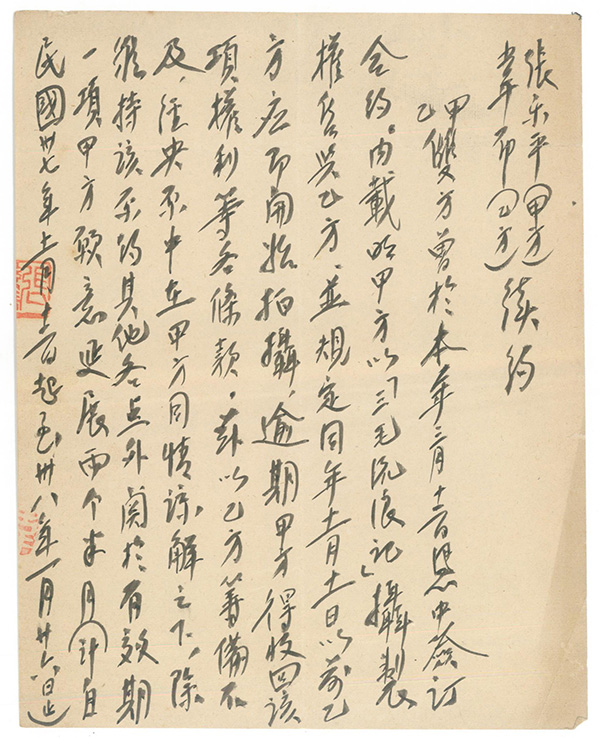 張乐平（甲方）
韋布（乙方）續約
甲乙雙方曾於本年三月十一日憑中簽訂
合約。內載明甲方以「三毛流浪記」攝製
權售與乙方，並規定同年十一月十一日以前乙
方应即開始拍攝，逾期甲方得收回該
項權利等各條款。茲以乙方籌備不
及，經央原中在甲方同情諒解之下，除
維持該原約其他各点外關於有效期
一項甲方願意延展兩个半月（計自
民國卅七年十一月十一日起至卅八年一月廿六日止）